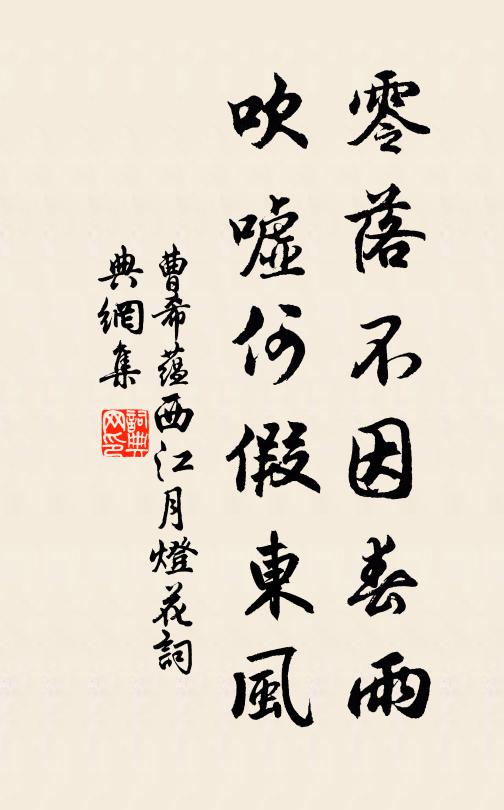 零落不因春雨
吹噓何假東風
曹希蘊西江月燈花詞
典網集
詞典網印